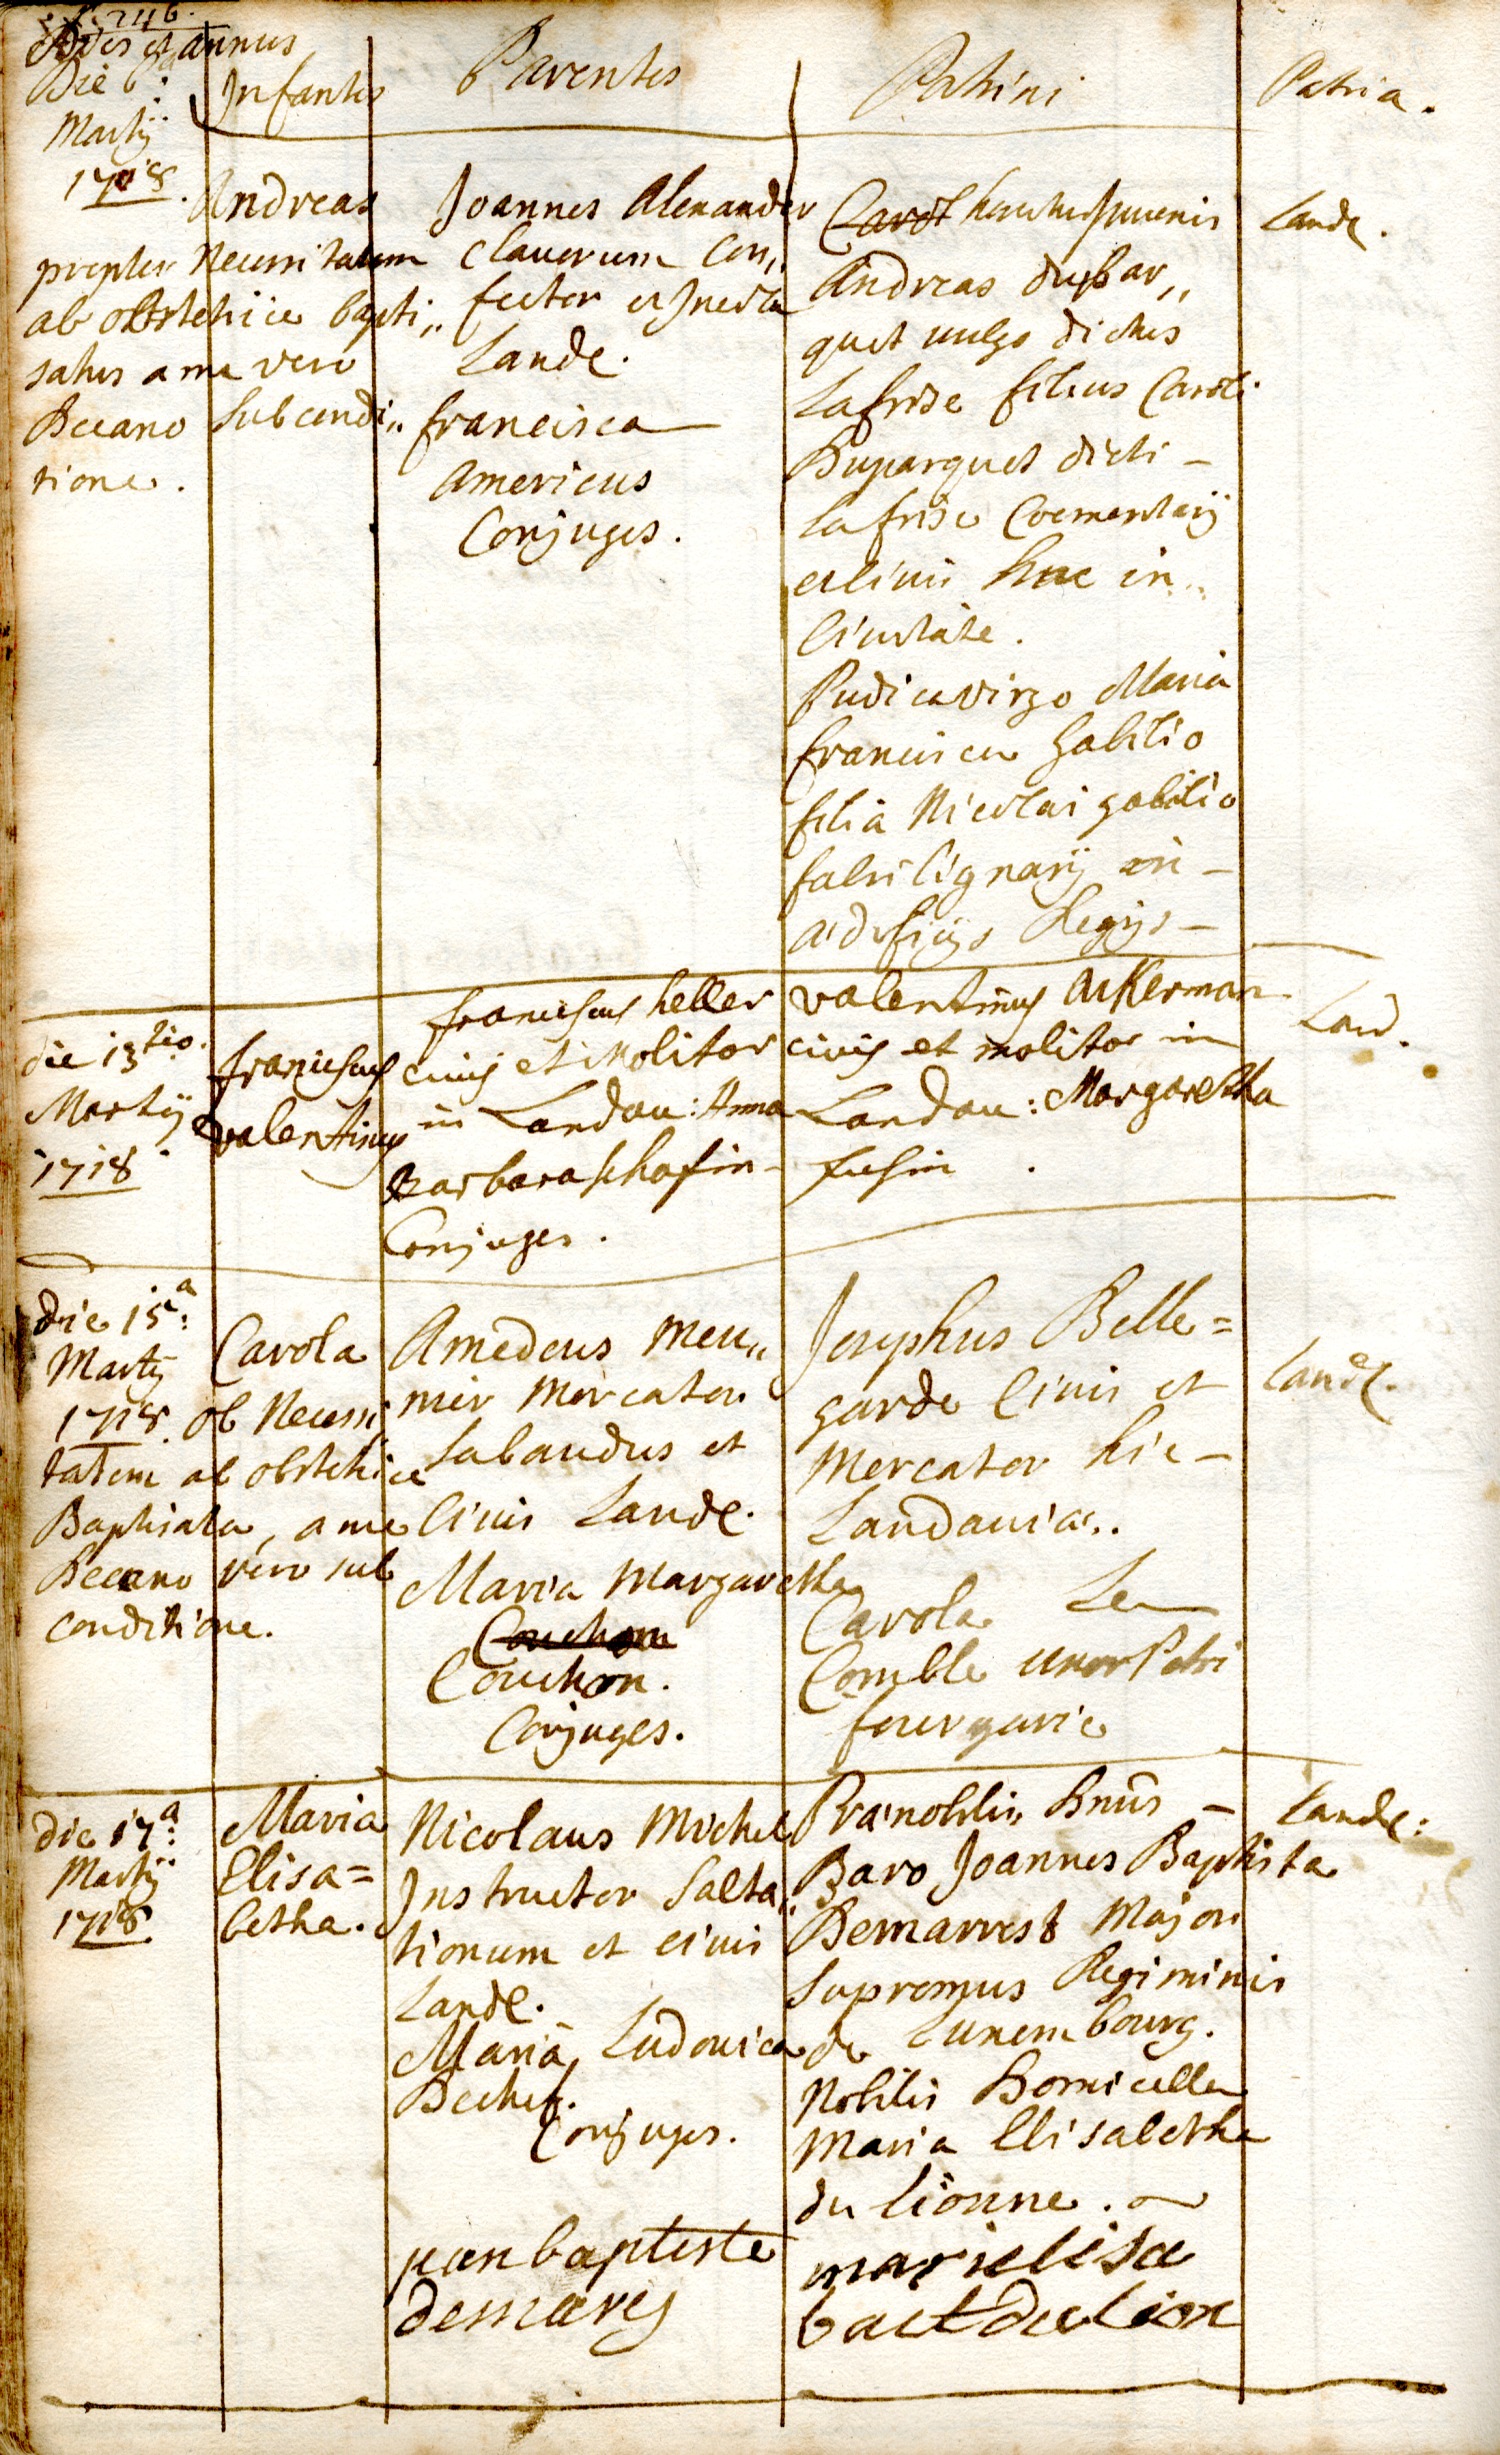 246.
Dies et annus
Infantes
Parentes
Patrini
Patria.
Die 6ta:
Martÿ
1718.
Andreas
propter Necessitatem
ab obstetrice bapti,,
satus a me vero
Decano sub condi,,
tione.
Joannes Alexander
Clauorum Con,,
fector et Incola
Landę.
francisca
Americus
Conjuges.
Juuenis
Andreas dupar,,
quet uulgo dictus
Lafrise filius Caroli
Duparquet dicti -
Lafrise Coementarÿ
et ciuis huc in
Ciuitate.
Pudica virgo Maria
francisca Gabilio
filia Nicolai gabilio
fabri lignarÿ in -
ædificÿs Regÿs -
Landę.
die 13tio.
Martÿ
1718
franciscus
valentinus
franciscus heller
civis et Molitor
in Landau: Anna
Barbara schafin -
Conjuges.
valentinus Akerman
civis et molitor in
Landau: Margaretha
.
Land.
die 15a:
Martÿ
1718.
Carola
ob Necessi
tatem ab obstetrice
Baptisata, a me
Decano vero sub
conditione.
Amedeus Meu,,
nier Mercator
Sabaudus et
Ciuis Landę.
Maria Margaretha
Couchon
Couchon.
Conjuges.
Josephus Belle=
garde Ciuis et
Mercator hic -
Landauiæ..
Carola Le
Comble uxor Petri
fourgarie
Landę.
die 17a:
Martÿ
1718.
Maria
Elisa=
betha.
Nicolaus Michel
Instructor Salta,,
tionum et ciuis
Landę.
Maria Ludouica
Bechet.
Conjuges.
Prænobilis Dnus -
Baro Joannes Baptista
Demarrest Major
Supremus Regiminis
de Luxembourg.
Nobilis Domicella
Maria Elisabetha
du lionne.
Landę:
jean baptiste
demares
marielisa
baet du lion